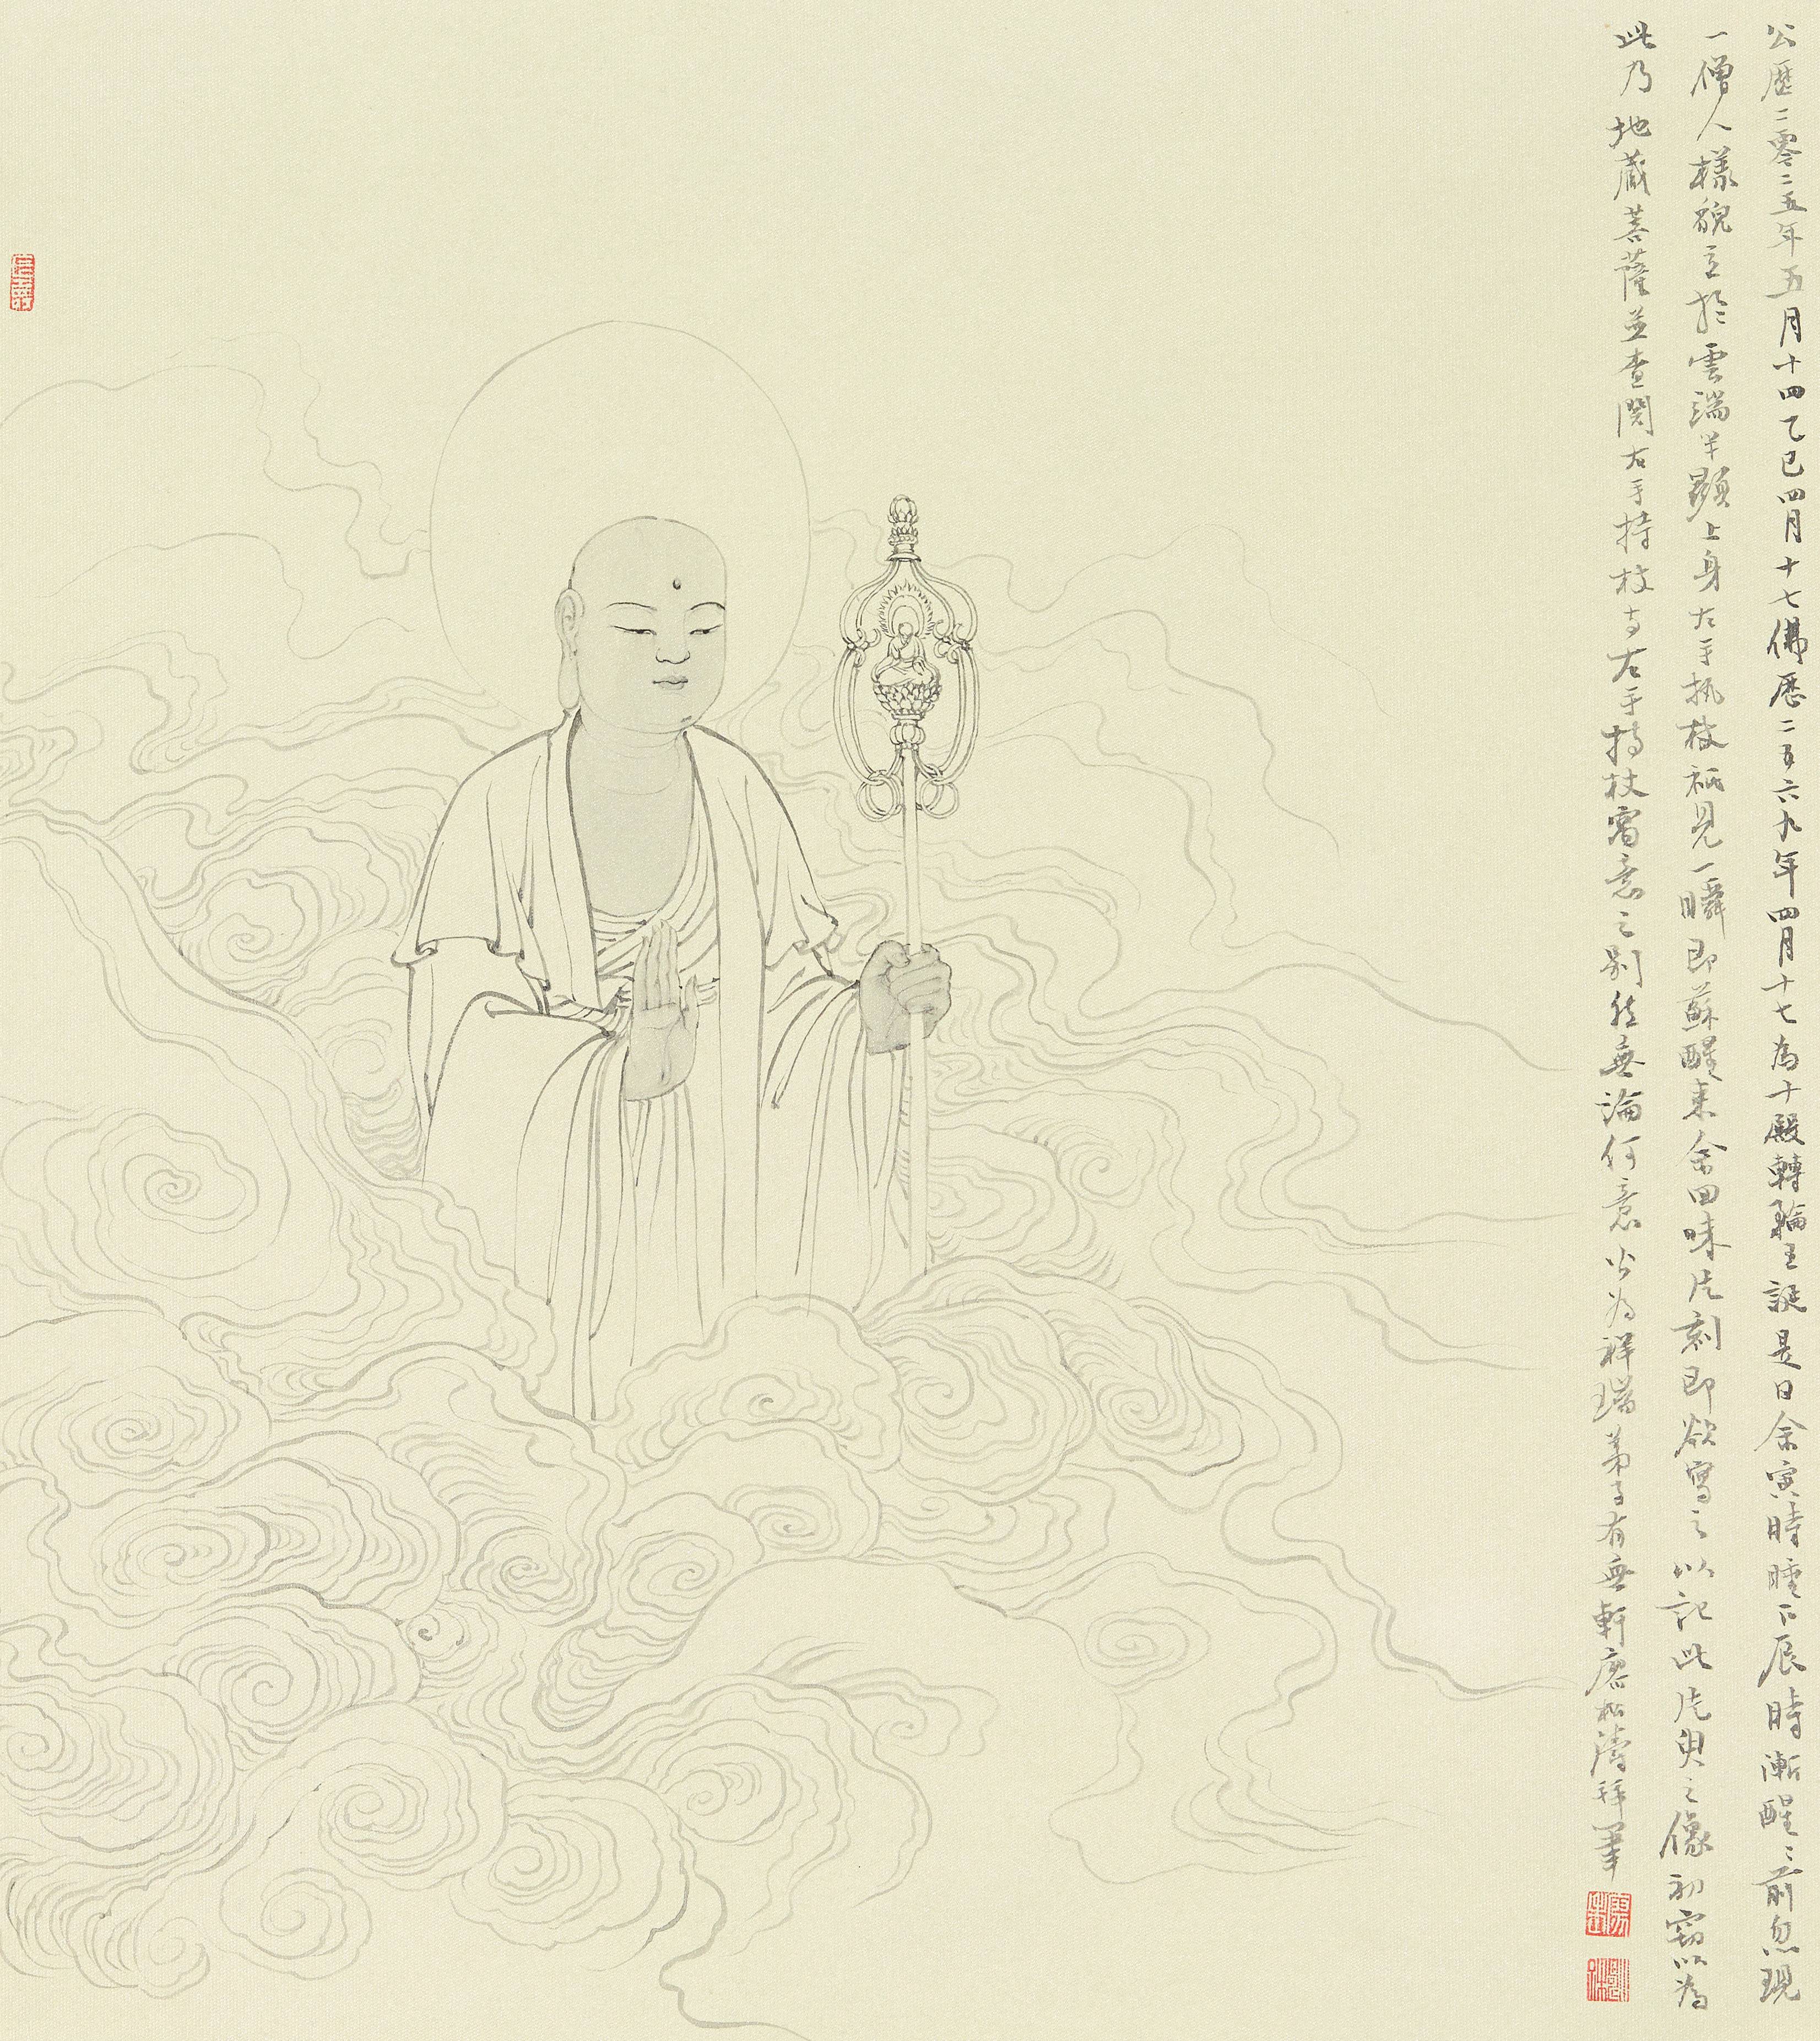 公歷二零二五年五月十四乙巳四月十七佛歷二五六九年四月十七為十殿轉輪王誕是日余寅時睡下辰時漸醒醒前忽現
一僧人樣貌立於雲端半顯上身左手執杖祇見一瞬即蘇醒來余回味片刻即欲寫之以記此片臾之像初竊以為
此乃地藏菩薩並查閱右手持杖與左手持杖寓意之別然無論何意以為祥瑞弟子有無軒廖松濤拜筆